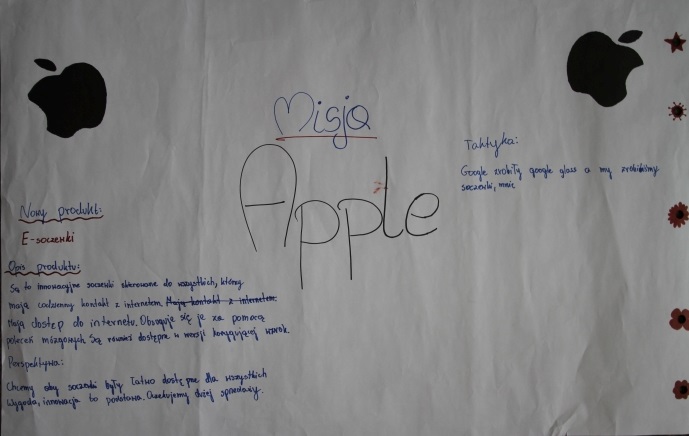 Misja
Apple
Nowy produkt:
E-soczewki
Opis produktu:
Są to innowacyjne soczewki skierowane do wszystkich, którzy
mają codzienny kontakt z internetem. Mają kontakt z internetem
Mają dostęp do internetu. Obsługuje się je za pomocą
poleceń mózgowych. Są również dostępne w wersji korygującej wzrok.
Perspektywa:
Chcemy aby soczewki były łatwo dostępne dla wszystkich
Wygoda, innowacja to podstawa. Oczekujemy dużej sprzedaży.
Taktyka:
Google zrobiły google glass a my zrobiliśmy
soczewki,